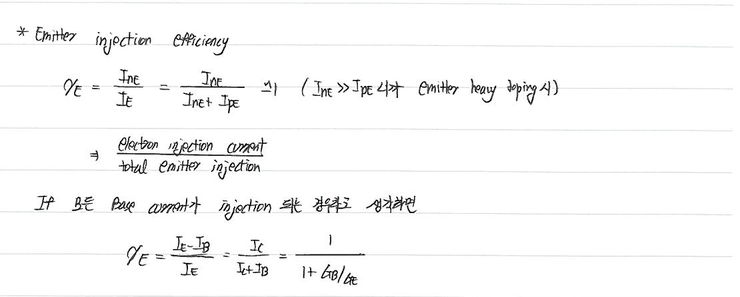 * Emitter injection efficiency
γE = InE / IE = InE / (InE + IpE) ≃ 1 ( InE >> IpE emitter heavy doping시 )
⇒ electron injection current / total emitter injection
If 모든 Base current가 injection 되는 경우라고 생각하면
γE = (IE - IB) / IE = IC / (IC + IB) = 1 / (1 + GB/GE)